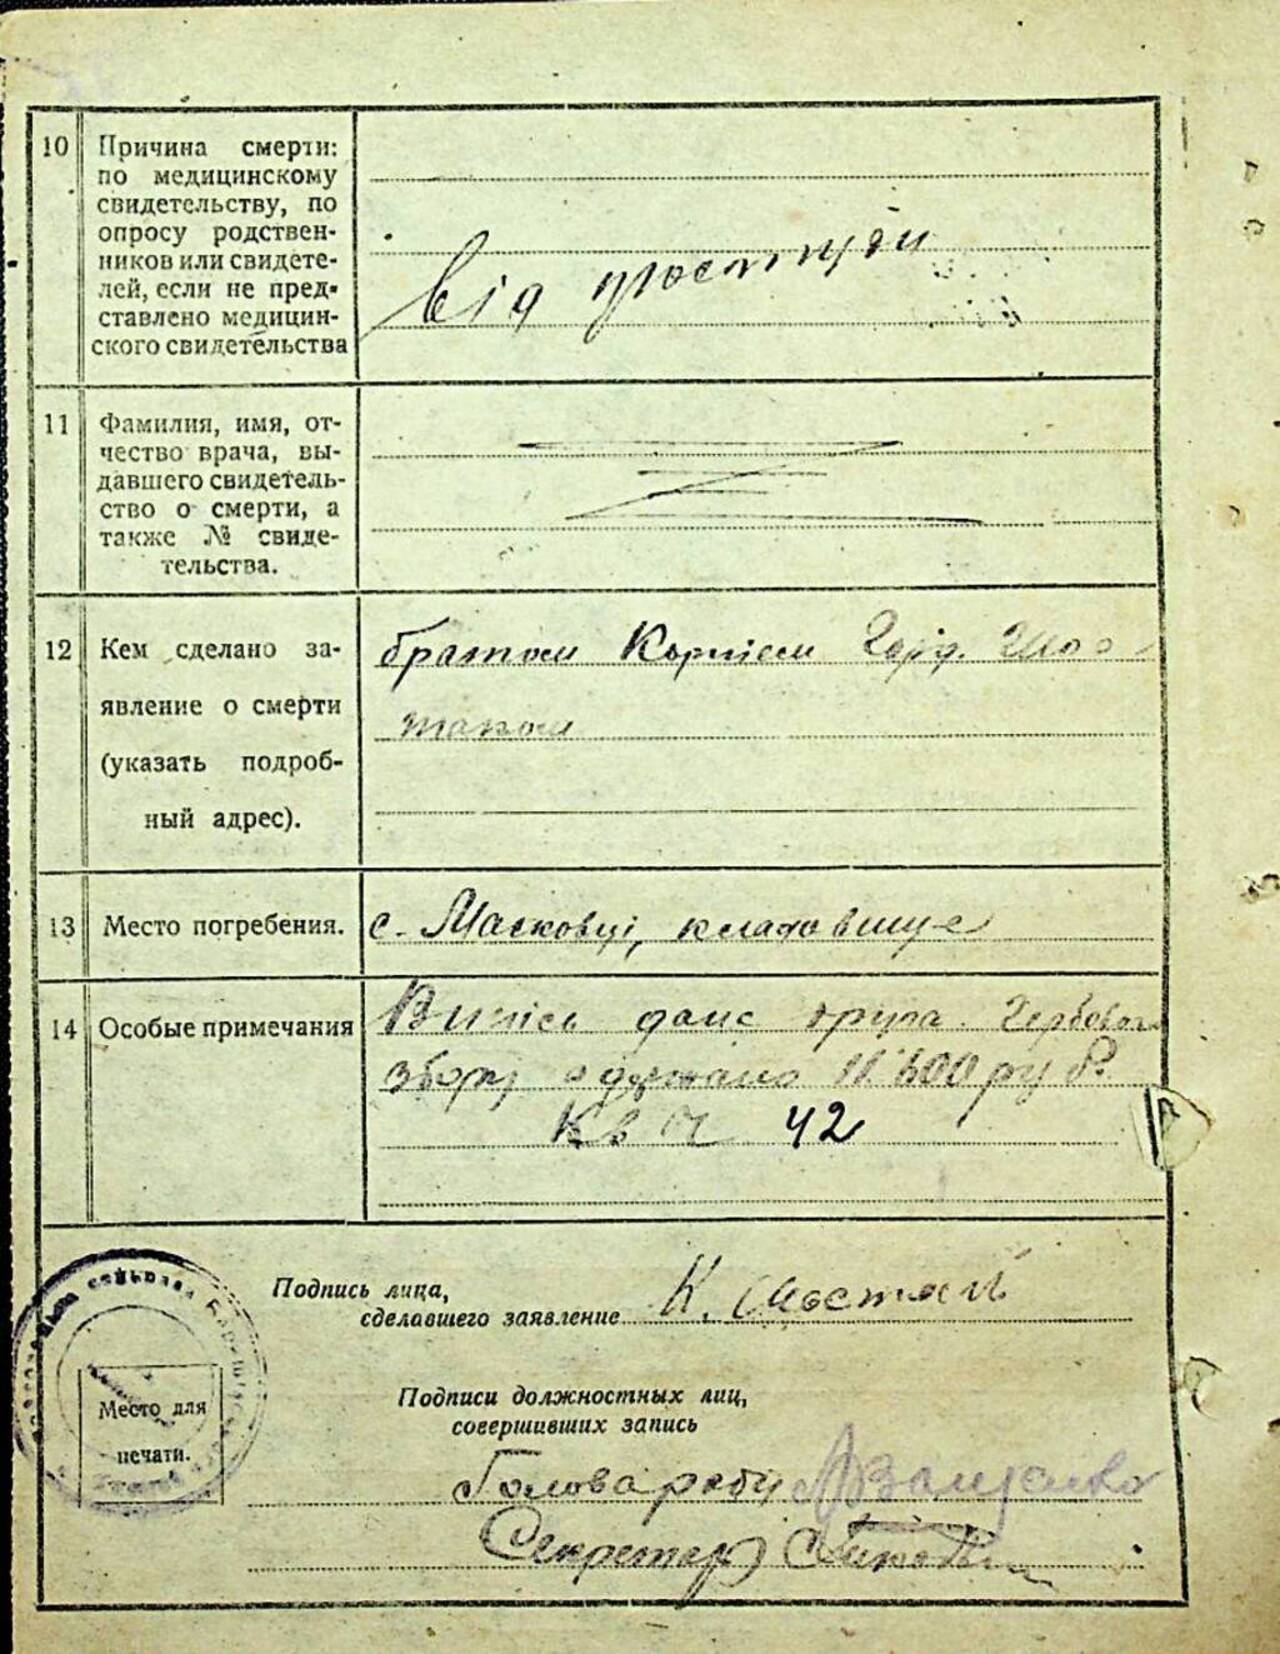 10
Причина смерти:
по медицинскому
свидетельству, по
опросу родствен-
ников или свидете-
лей, если не пред-
ставлено медицин-
ского свидетельства
від простуди
11
Фамилия, имя, от-
чество врача, вы-
давшего свидетель-
ство о смерти, а
также № свиде-
тельства.
12
Кем сделано за-
явление о смерти
(указать подроб-
ный адрес).
братом Корнієм Горд. Шос-
таком
13
Место погребения.
с. Масковці, кладовище
14
Особые примечания
Випись друга
збору одержано руб.
Кв 42
Подпись лица,
сделавшего заявление
К. Шостак
Место для
печати.
Подписи должностных лиц,
совершивших запись
Голова ради
Секретар